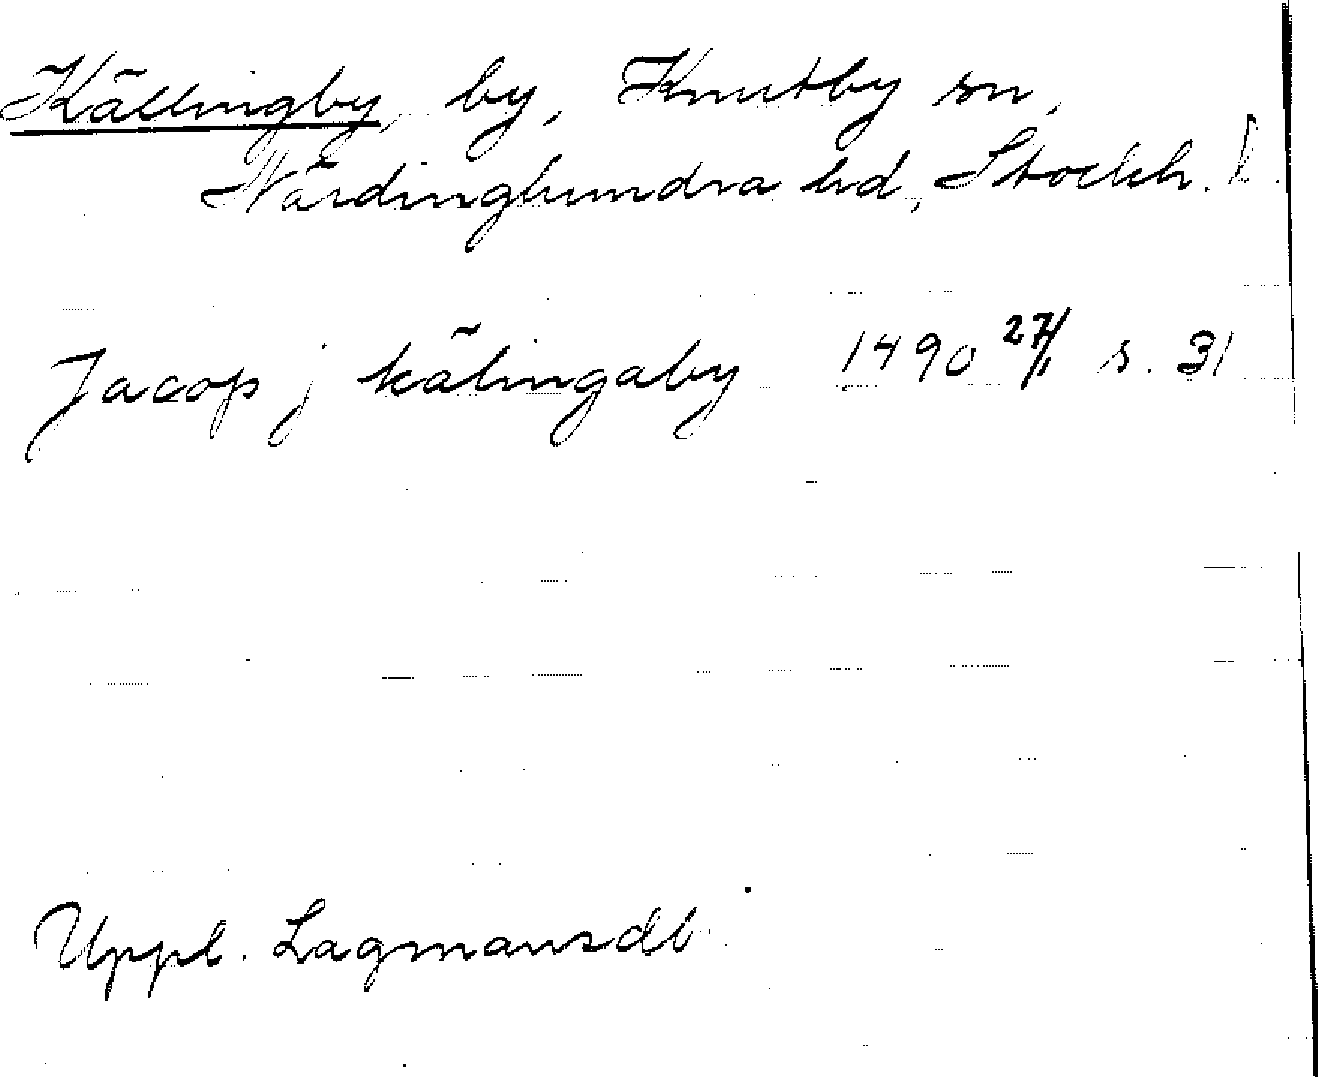 Källingby, by, Knutby sn,
Närdinghundra hd, Stockh. l.
Jacop j kälingaby 1490 27/1 s. 31
Uppl. Lagmansdb